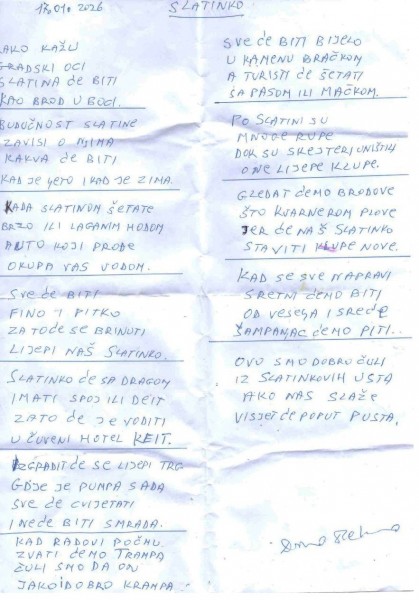 17.01.2026
SLATINKO
AKO KAŽU
GRADSKI OCI
SLATINA ĆE BITI
KAO BROD U BOCI.
BUDUĆNOST SLATINE
ZAVISI O NJIMA
KAKVA ĆE BITI
KAD JE LJETO I KAD JE ZIMA.
KADA SLATINOM ŠETATE
BRZO ILI LAGANIM HODOM
AUTO KOJI PROĐE
OKUPA VAS VODOM.
SVE ĆE BITI
FINO I PITKO
ZA TO ĆE SE BRINUTI
LIJEPI NAŠ SLATINKO.
SLATINKO ĆE SA DRAGOM
IMATI SPOJ ILI DEIT
ZATO ĆE JE VODITI
U ČUVENI HOTEL KEIT.
IZGRADIT ĆE SE LIJEPI TRG
GDJE JE PUMPA SADA
SVE ĆE CVIJETATI
I NEĆE BITI SMRADA.
KAD RADOVI POČNU
ZVATI ĆEMO TRAMPA
ČULI SMO DA ON
JAKO I DOBRO KRAMPA
SVE ĆE BITI BIJELO
U KAMENU BRAČKOM
A TURISTI ĆE ŠETATI
SA PASOM ILI MAČKOM.
PO SLATINI SU
MNOGE RUPE
DOK SU SKEJTERI UNIŠTILI
ONE LIJEPE KLUPE.
GLEDAT ĆEMO BRODOVE
ŠTO KVARNEROM PLOVE
JER ĆE NAŠ SLATINKO
STAVITI KLUPE NOVE.
KAD SE SVE NAPRAVI
SRETNI ĆEMO BITI
OD VESELJA I SREĆE
ŠAMPANJAC ĆEMO PITI.
OVO SMO DOBRO ČULI
IZ SLATINKOVIH USTA
AKO NAS SLAŽE
VISJET ĆE POPUT PUSTA.